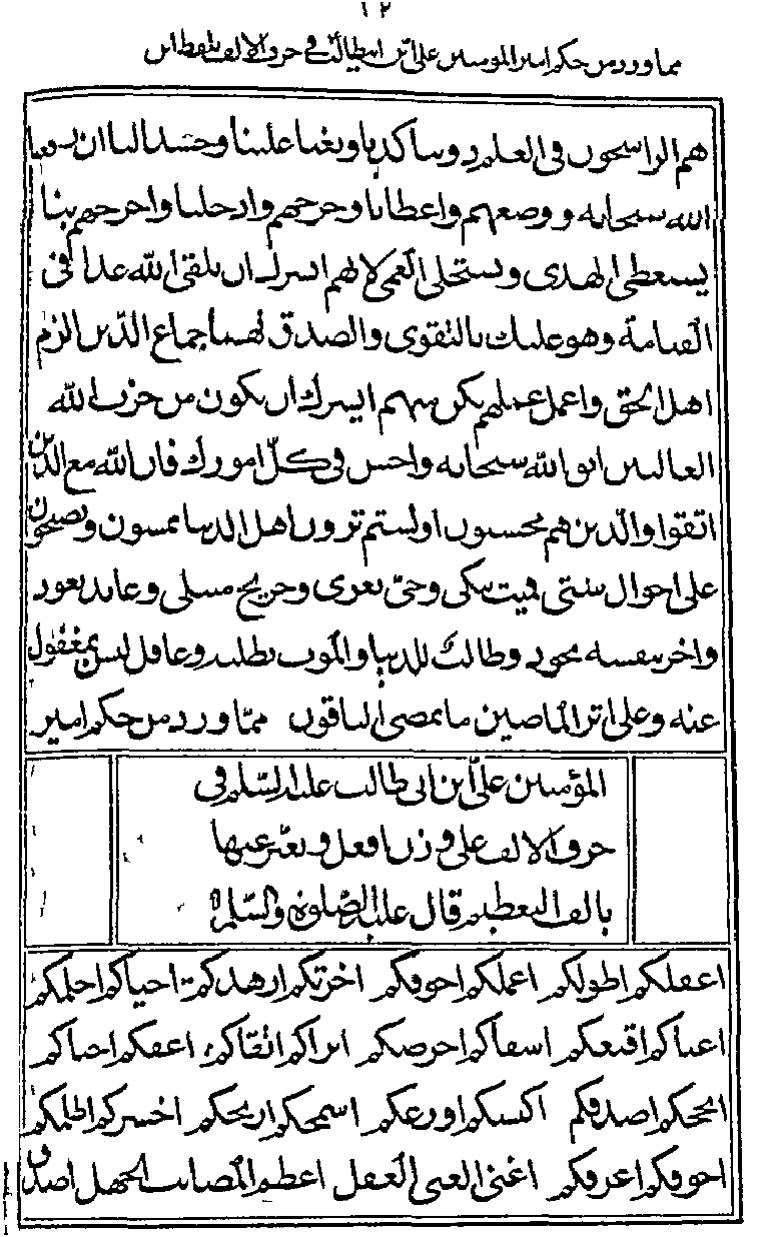 ١٢
مما ورد من حكم امير المؤمنين علي ابن ابيطالب في حرف الالف بلفظ
هم الراسخون في العلم دوننا كذبا وبغيا علينا وحسدا لنا ان رفعنا
الله سبحانه ووضعهم واعطانا وحرمهم وادخلنا واخرجهم بنا
يستعطى الهدى ويستجلى العمى لا بهم ايسرك ان تلقى الله غدا في
القيامة وهو عليك بالتقوى والصدق فهما جماع الدين الزم
اهل الحق واعمل عملهم تكن منهم ايسرك ان تكون من حزب الله
الغالبين اتق الله سبحانه واحسن في كل امورك فان الله مع الذين
اتقوا والذين هم محسنون اولستم ترون اهل الدنيا يمسون ويصبحون
على احوال شتى فميت يبكى وحي يعزى وجريح مبتلى وعايد يعود
واخر بنفسه يجود وطالب للدنيا والموت يطلبه وغافل ليس بمغفول
عنه وعلى اثر الماضين ما يمضي الباقون مما ورد من حكم امير
المؤمنين علي ابن ابي طالب عليه السلم في
حرف الالف على وزن افعل ويعبر عنها
بالف التعظيم قال عليه الصلوة والسلم
اعقلكم اطولكم اعملكم اخوفكم ازهدكم احياكم احلمكم
اغناكم اقنعكم اشقاكم احرصكم ابراكم اتقاكم اعفكم احياكم
انجحكم اصدقكم اكيسكم اورعكم اسمحكم اربحكم اخسركم اظلمكم
اخوفكم اعرفكم اغنى الغنى العقل اعظم المصائب الجهل اصدق